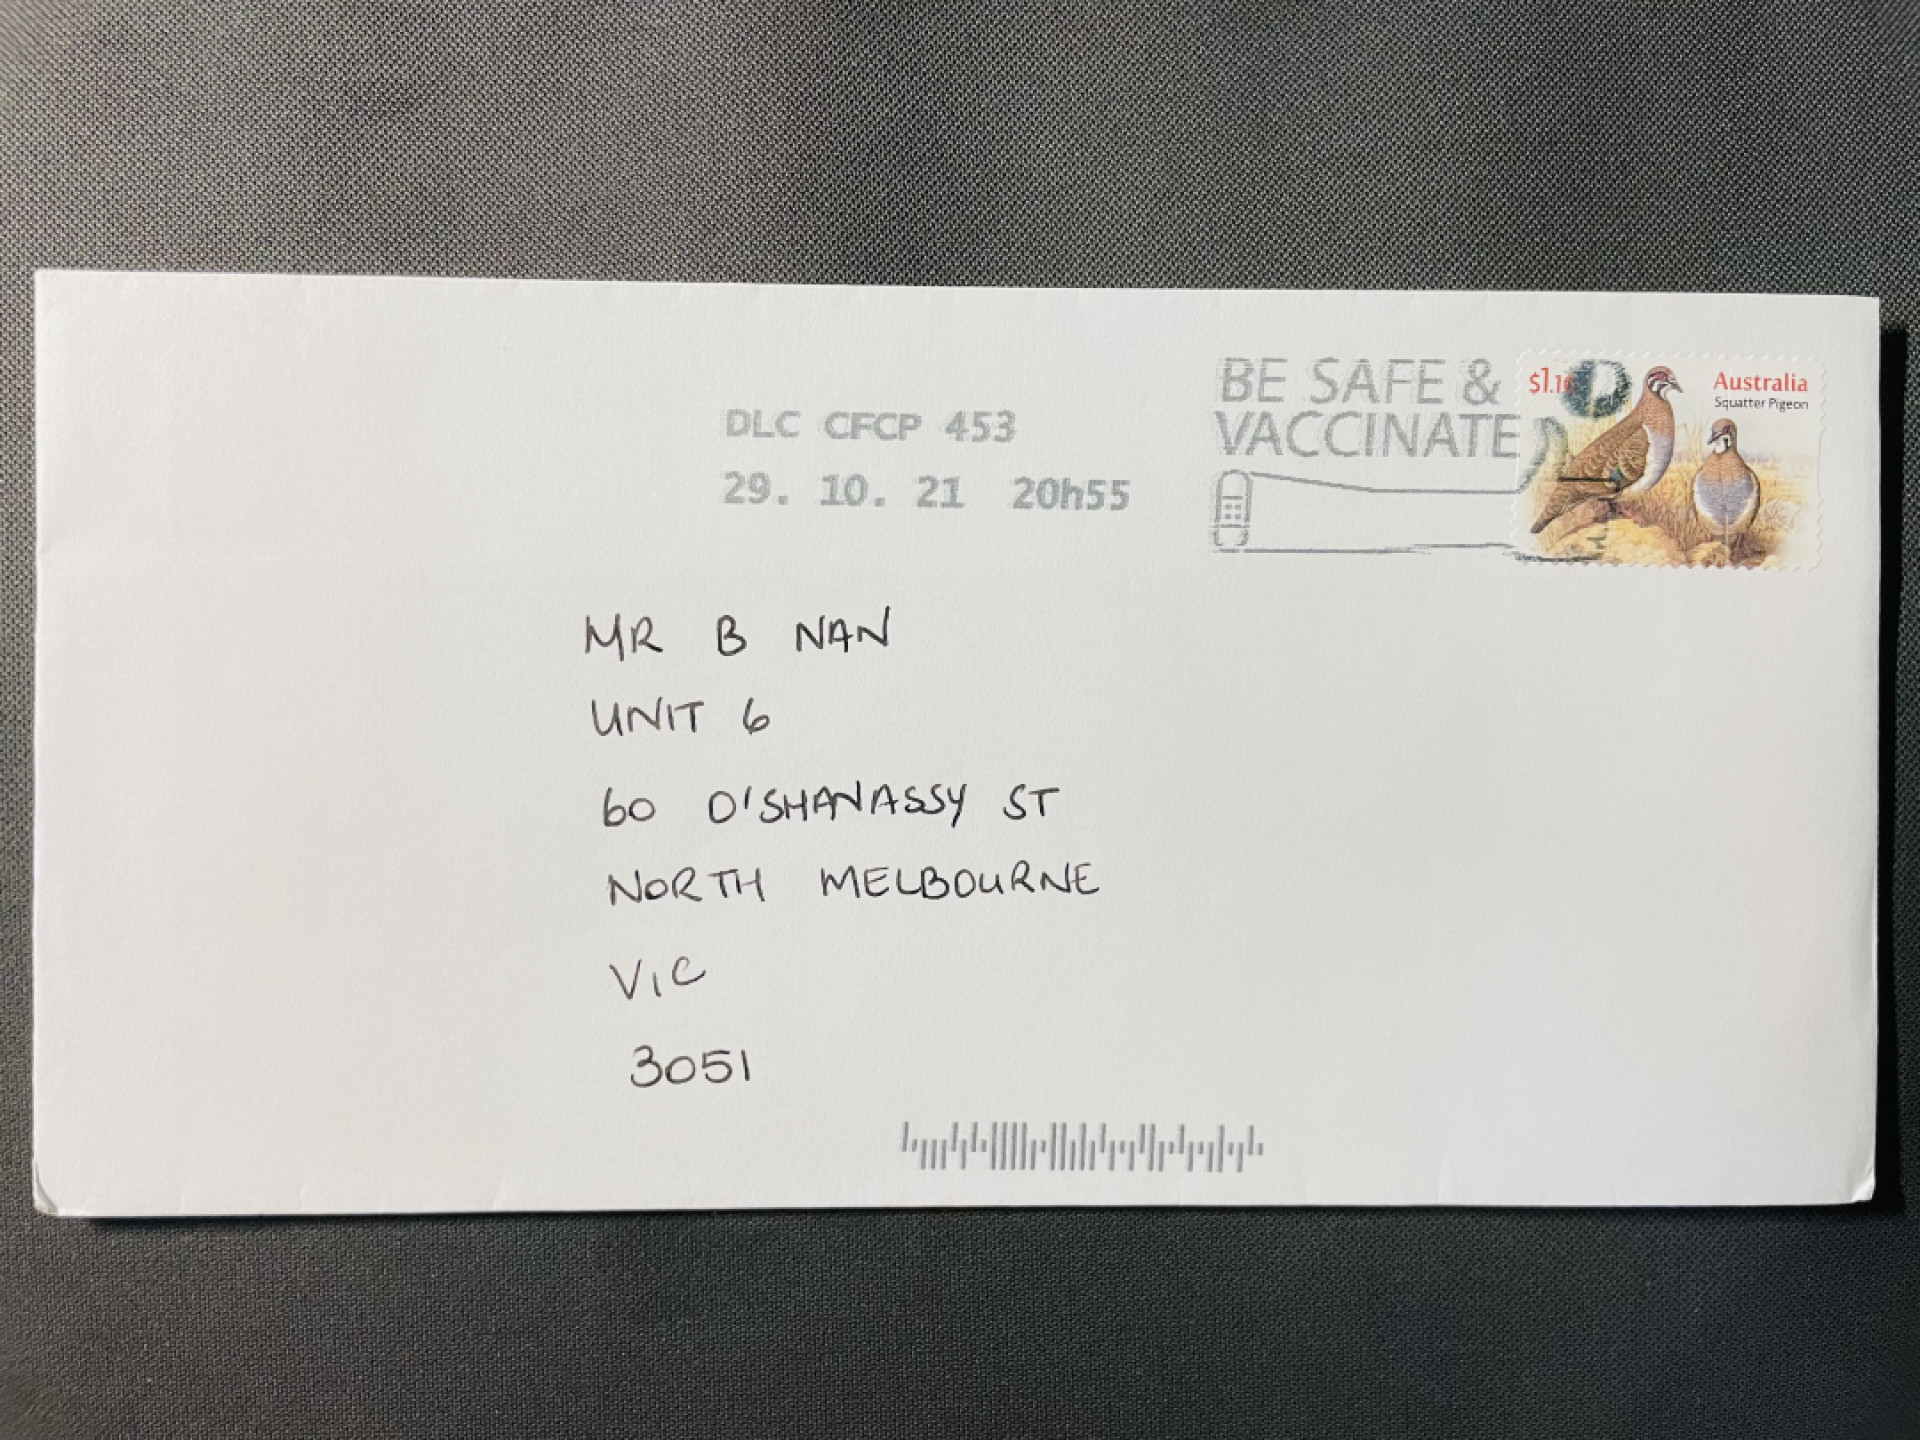 BE SAFE &
VACCINATE
$1.10
Australia
Squatter Pigeon
DLC CFCP 453
29. 10. 21 20h55
MR B NAN
UNIT 6
60 O'SHANASSY ST
NORTH MELBOURNE
VIC
3051